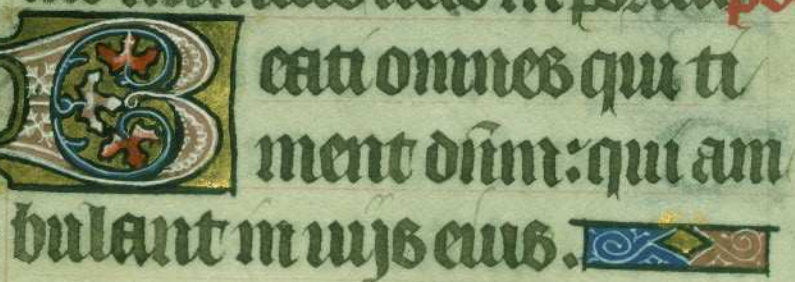 Beati omnes qui ti
ment dñm: qui am
bulant in uijs eius.